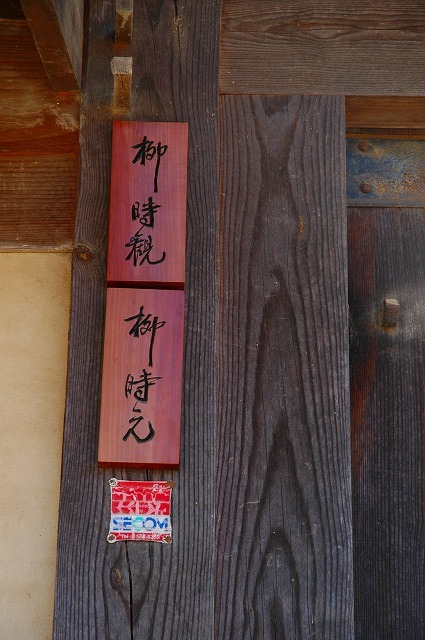 柳時觀
柳時元
SECOM